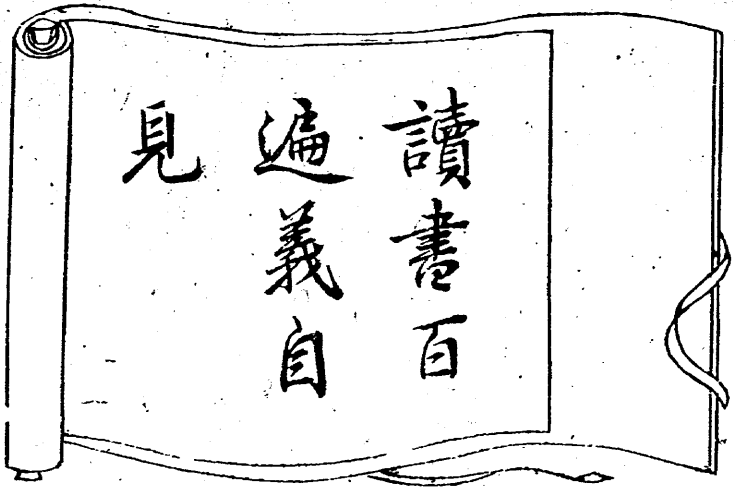 讀書百
遍義自
見